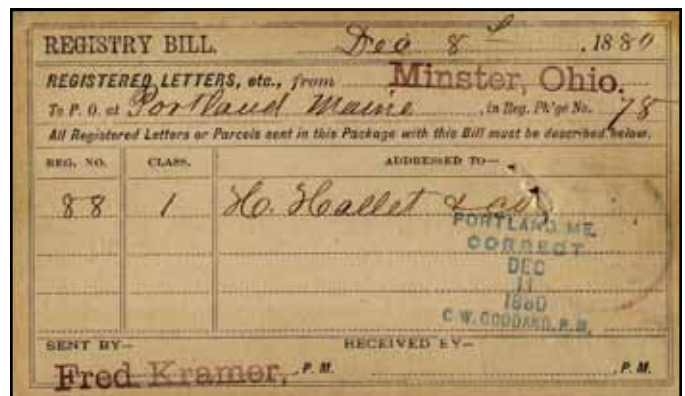 REGISTRY BILL. Dec 8 , 1880
REGISTERED LETTERS, etc., from Minster, Ohio.
To P. O. at Portland Maine , in Reg. Ph'ge No. 78
All Registered Letters or Parcels sent in this Package with this Bill must be described below.
REG. NO. CLASS. ADDRESSED TO—
88 1 H. Hallet & co
PORTLAND ME.
CORRECT
DEC
11
1880
C. W. GODDARD, P. M.
SENT BY— RECEIVED BY—
Fred Kramer, P. M. , P. M.